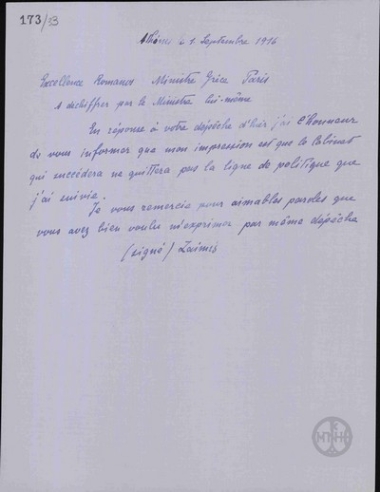 173/53
Athènes le 1 Septembre 1916
Excellence Romanos Ministre Grèce Paris
A déchiffrer par le Ministre lui-même
En réponse à votre dépêche d'hier j'ai l'Honneur
de vous informer que mon impression est que le Cabinet
qui succédera ne quittera pas la ligne de politique que
j'ai suivie.
Je vous remercie pour aimables paroles que
vous avez bien voulu m'exprimer par même dépêche
(signé) Zaimis